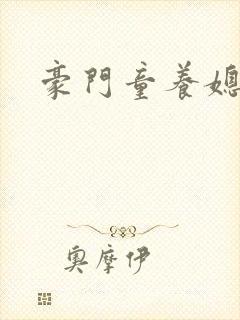 豪門童養媳
奧摩伊